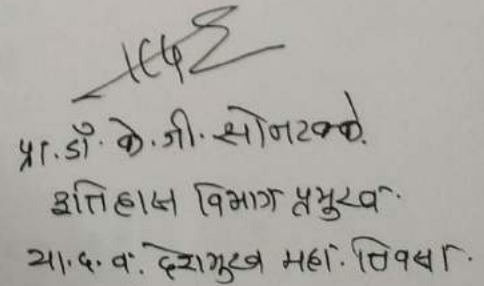 प्रा. डॉ. के. जी. सोनटक्के.
इतिहास विभाग प्रमुख.
या. द. व. देशमुख महा. तिवसा.